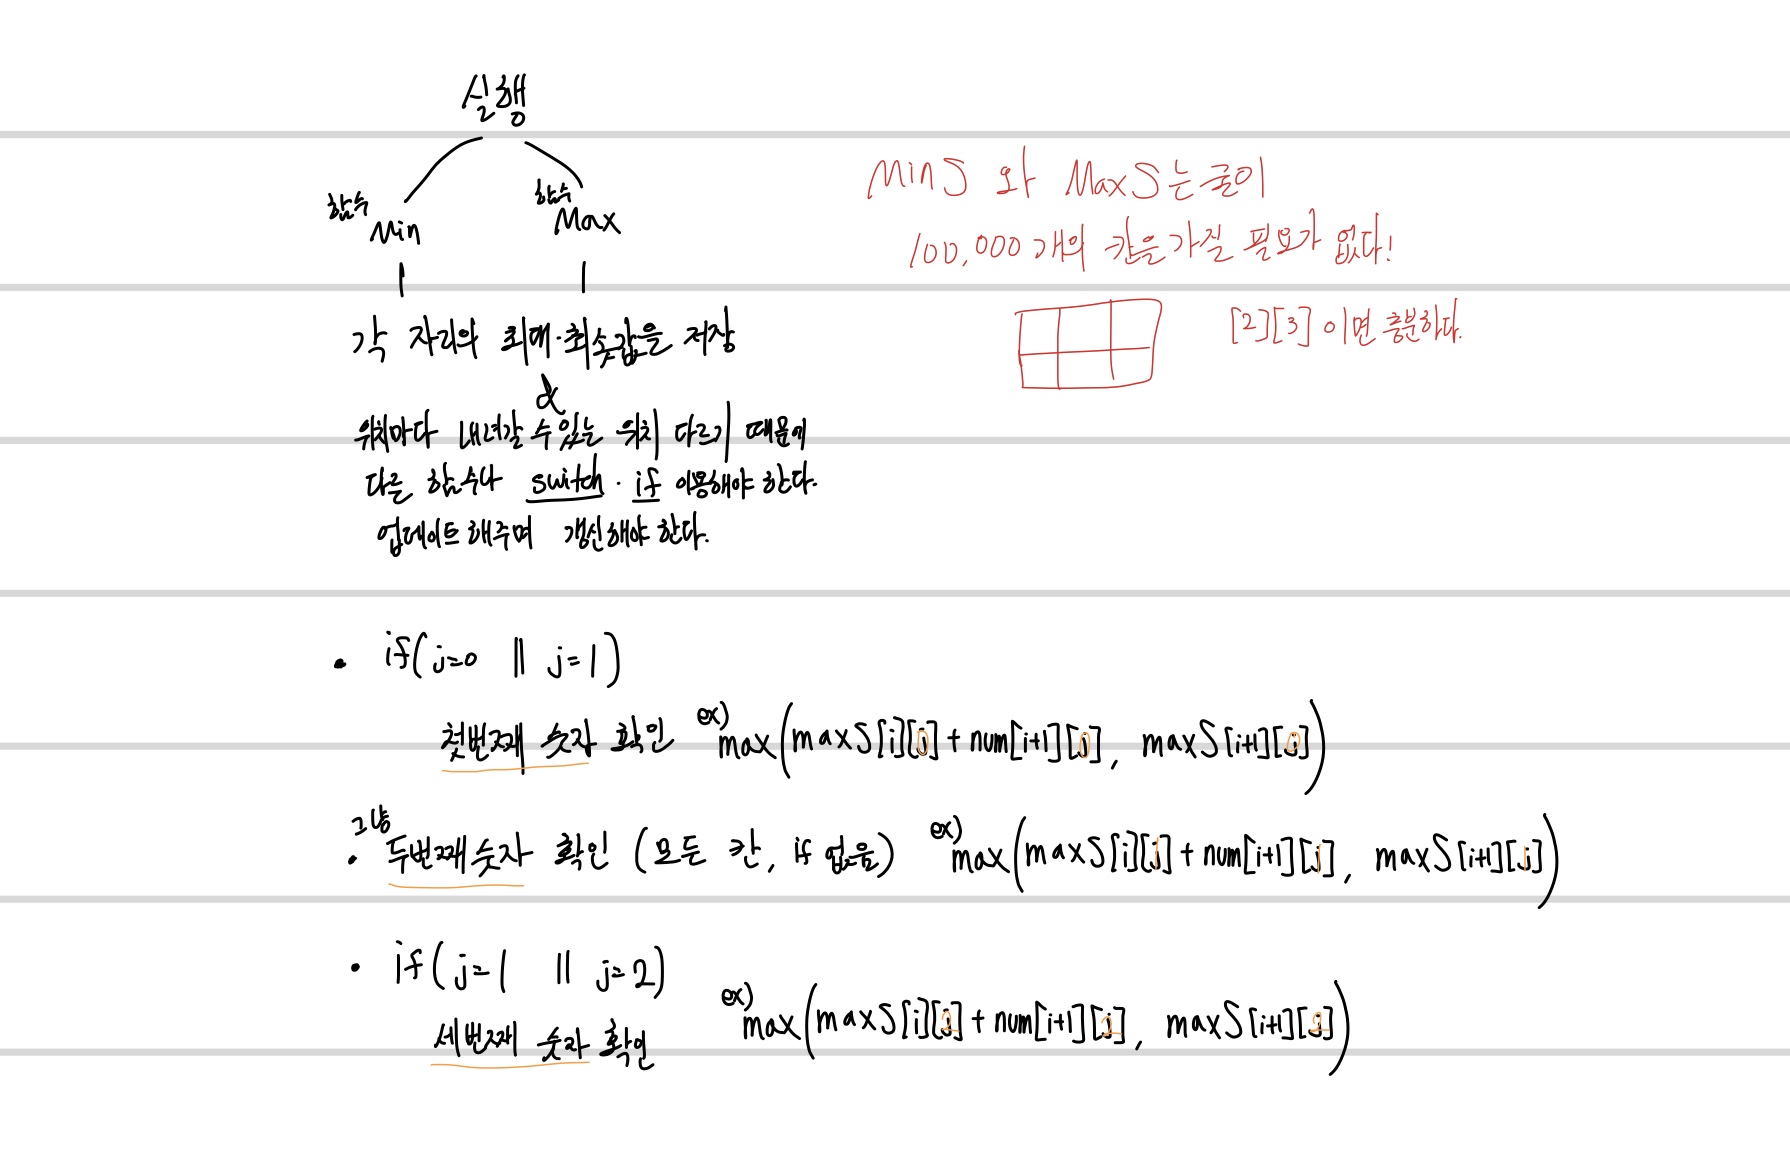 실행
함수 Min
함수 Max
각 자리의 최대·최솟값을 저장
&
위치마다 내려갈 수 있는 위치 다르기 때문에
다른 함수나 switch · if 이용해야 한다.
업데이트 해주며 갱신해야 한다.
MinS 와 MaxS는 굳이
100,000개의 칸을 가질 필요가 없다!
[2][3] 이면 충분하다.
• if(j=0 || j=1)
첫번째 숫자 확인 ex) max(maxS[i][0] + num[i+1][0], maxS[i+1][0])
그냥
• 두번째 숫자 확인 (모든 칸, if 없음) ex) max(maxS[i][1] + num[i+1][1], maxS[i+1][1])
• if(j=1 || j=2)
세번째 숫자 확인 ex) max(maxS[i][2] + num[i+1][2], maxS[i+1][2])